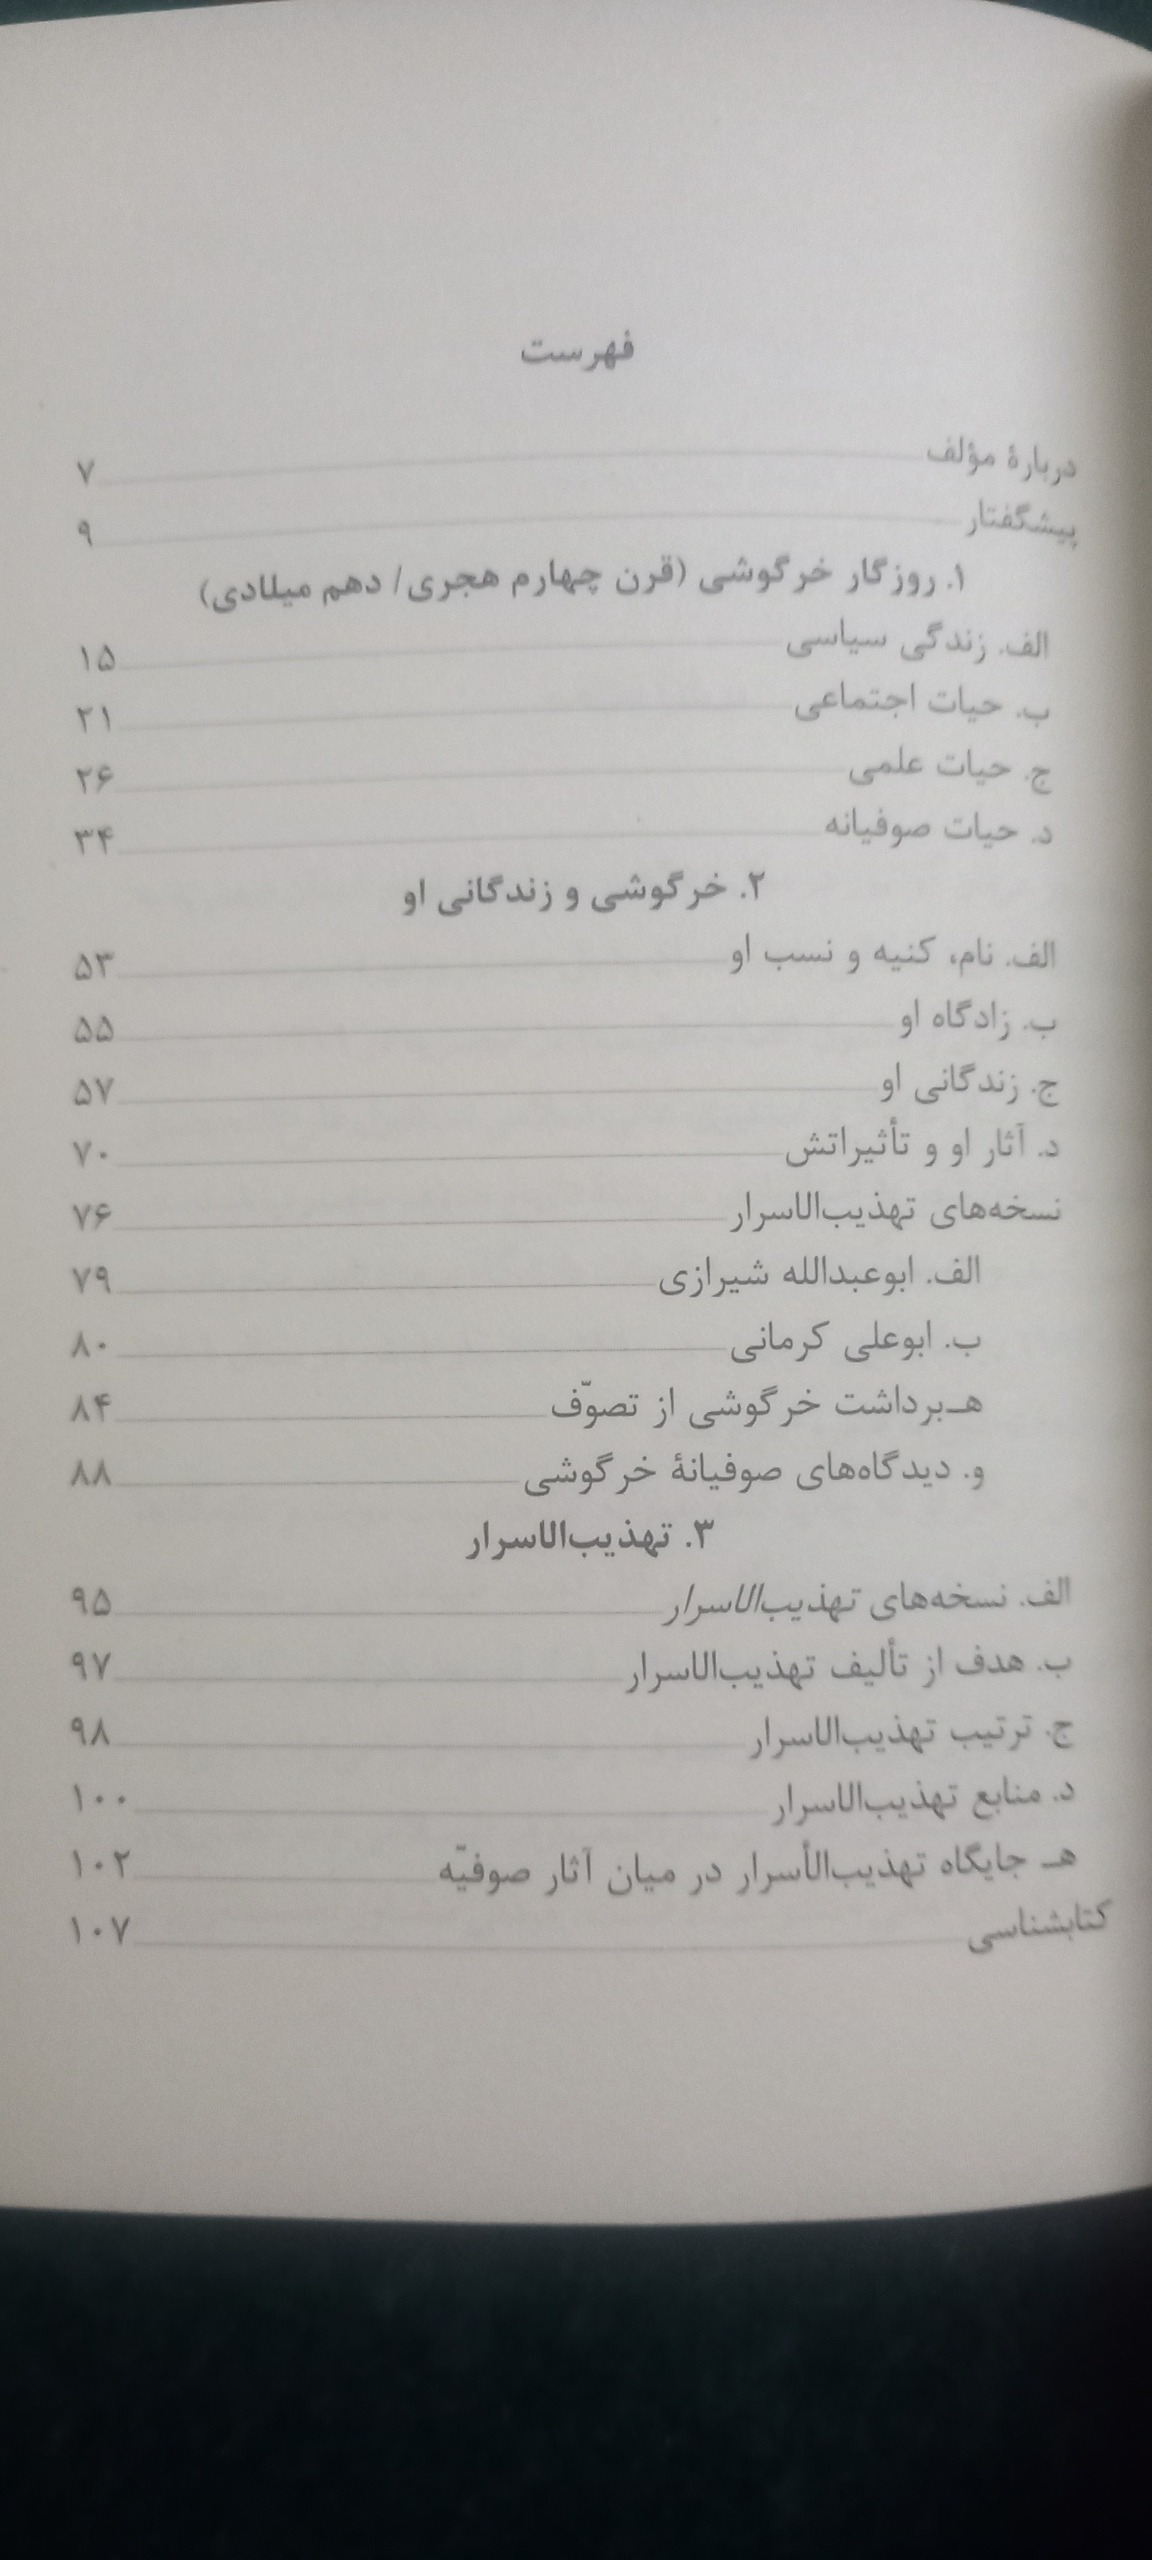 فهرست
دربارهٔ مؤلف ۷
پیشگفتار ۹
۱. روزگار خرگوشی (قرن چهارم هجری/ دهم میلادی)
الف. زندگی سیاسی ۱۵
ب. حیات اجتماعی ۲۱
ج. حیات علمی ۲۶
د. حیات صوفیانه ۳۴
۲. خرگوشی و زندگانی او
الف. نام، کنیه و نسب او ۵۳
ب. زادگاه او ۵۵
ج. زندگانی او ۵۷
د. آثار او و تأثیراتش ۷۰
نسخه‌های تهذیب‌الاسرار ۷۶
الف. ابوعبدالله شیرازی ۷۹
ب. ابوعلی کرمانی ۸۰
هـ‌برداشت خرگوشی از تصوّف ۸۴
و. دیدگاه‌های صوفیانهٔ خرگوشی ۸۸
۳. تهذیب‌الاسرار
الف. نسخه‌های تهذیب‌الاسرار ۹۵
ب. هدف از تألیف تهذیب‌الاسرار ۹۷
ج. ترتیب تهذیب‌الاسرار ۹۸
د. منابع تهذیب‌الاسرار ۱۰۰
هـ جایگاه تهذیب‌الأسرار در میان آثار صوفیّه ۱۰۲
کتابشناسی ۱۰۷